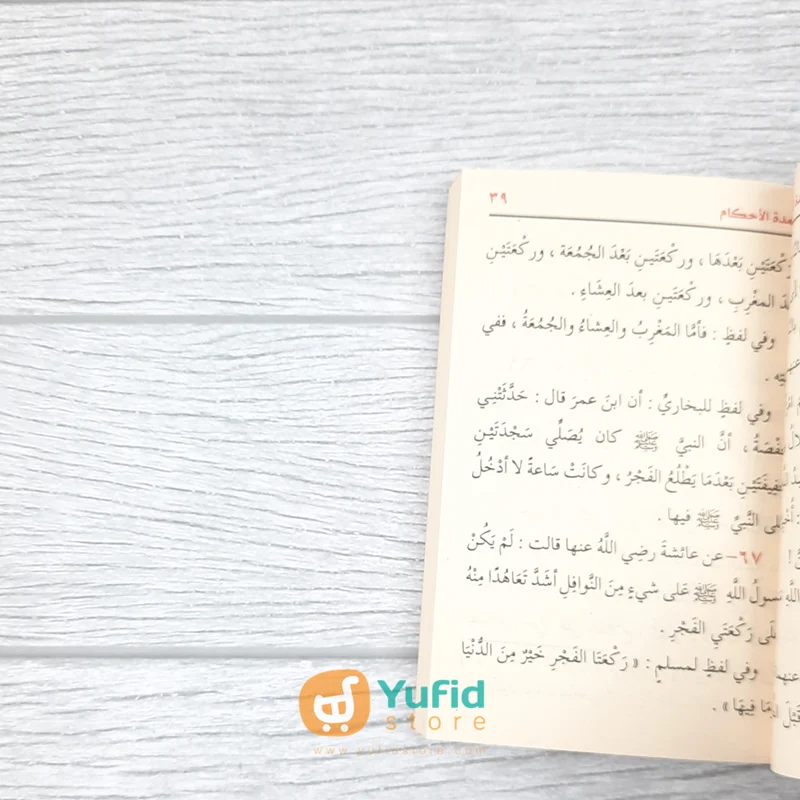 ٣٩
عمدة الأحكام
وركْعَتَيْنِ بَعْدَهَا ، وركْعَتَينِ بَعْدَ الجُمُعَة ، وركْعَتَيْنِ
بعدَ المغْربِ ، وركْعَتَينِ بعدَ العِشَاءِ .
وفي لفظٍ : فأمَّا المَغْرِبُ والعِشاءُ والجُمُعَةُ ، ففي
بيته .
وفي لفظٍ للبخاريِّ : أن ابنَ عمرَ قال : حَدَّثَتْنِي
حفْصَةُ ، أنَّ النبيَّ ﷺ كان يُصَلِّي سَجْدَتَيْنِ
خفِيفَتَيْنِ بَعْدَمَا يَطْلُعُ الفَجْرُ ، وكانَتْ سَاعةً لا أدْخُلُ
على النَّبيِّ ﷺ فيها .
٦٧- عن عائشةَ رضِي اللَّهُ عنها قالت : لَمْ يَكُنْ
رسولُ اللَّهِ ﷺ عَلى شيءٍ مِنَ النَّوافِلِ أشَدَّ تَعَاهُدًا مِنْهُ
علَى رَكْعَتَيِ الفَجْرِ .
وفي لفظٍ لمسلمٍ : « رَكْعَتَا الفَجْرِ خَيْرٌ مِنَ الدُّنْيَا
ومَا فِيهَا » .
Yufid
store